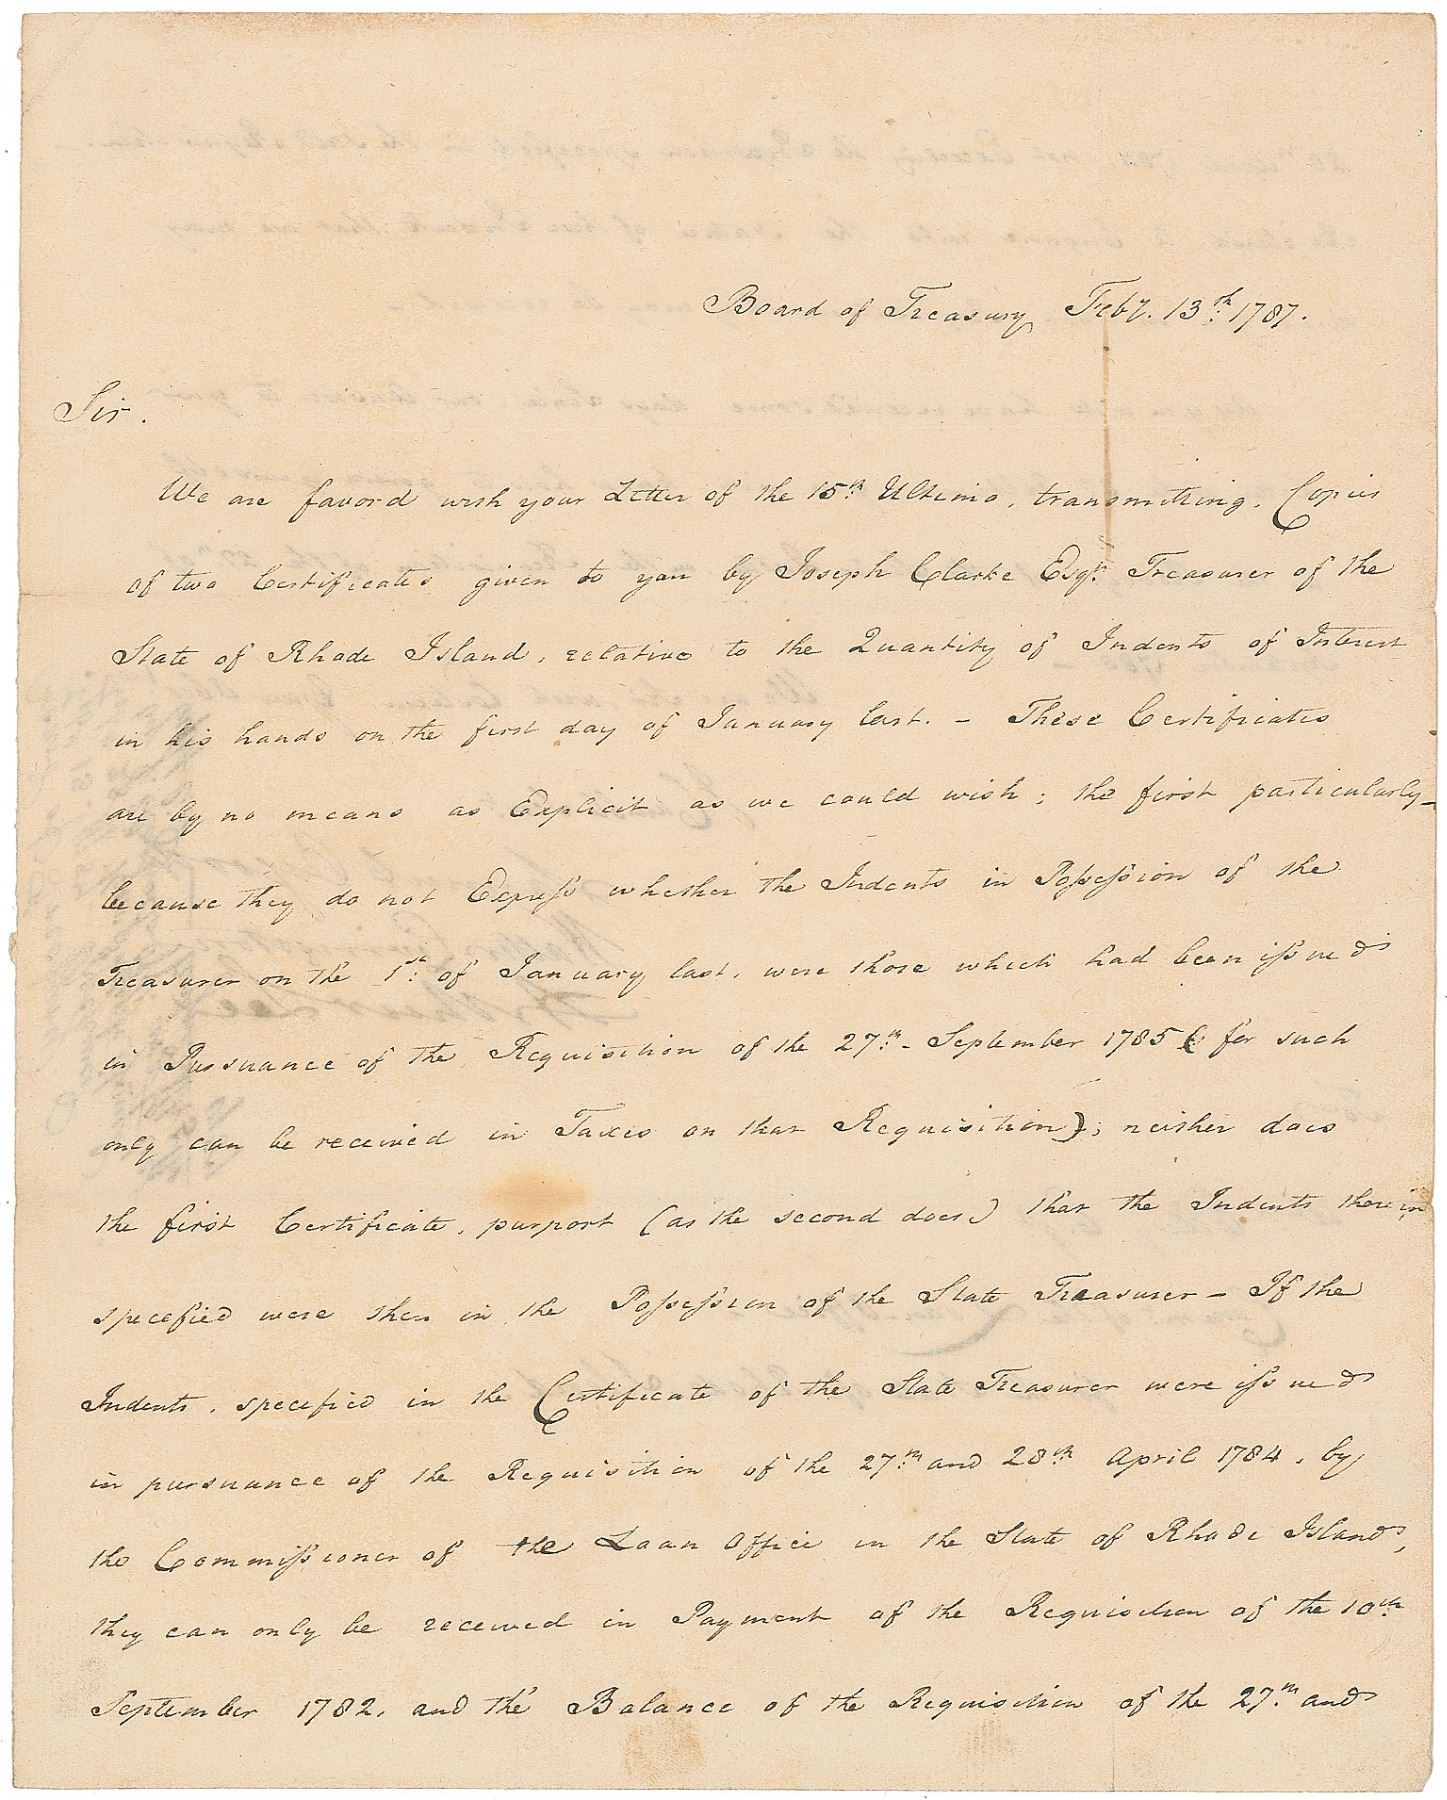 Board of Treasury Feby. 13th: 1787.
Sir.
We are favord with your Letter of the 15th: Ultimo, transmitting, Copies
of two Certificates given to you by Joseph Clarke Esqr: Treasurer of the
State of Rhode Island, relative to the Quantity of Indents of Interest
in his hands on the first day of January last. – These Certificates
are by no means as Explicit as we could wish; the first particularly –
because they do not Express whether the Indents in Possession of the
Treasurer on the 1st: of January last, were those which had been issued
in Pursuance of the Requisition of the 27th: September 1785 (for such
only can be received in Taxes on that Requisition); neither does
the first Certificate, purport (as the second does) that the Indents therein
specefied were then in the Possession of the State Treasurer – If the
Indents, specefied in the Certificate of the State Treasurer were issued
in pursuance of the Requisition of the 27th: and 28th: April 1784, by
the Commissioner of the Loan Office in the State of Rhode Island,
they can only be received in Payment of the Requisition of the 10th
September 1782, and the Balance of the Requisition of the 27th: and